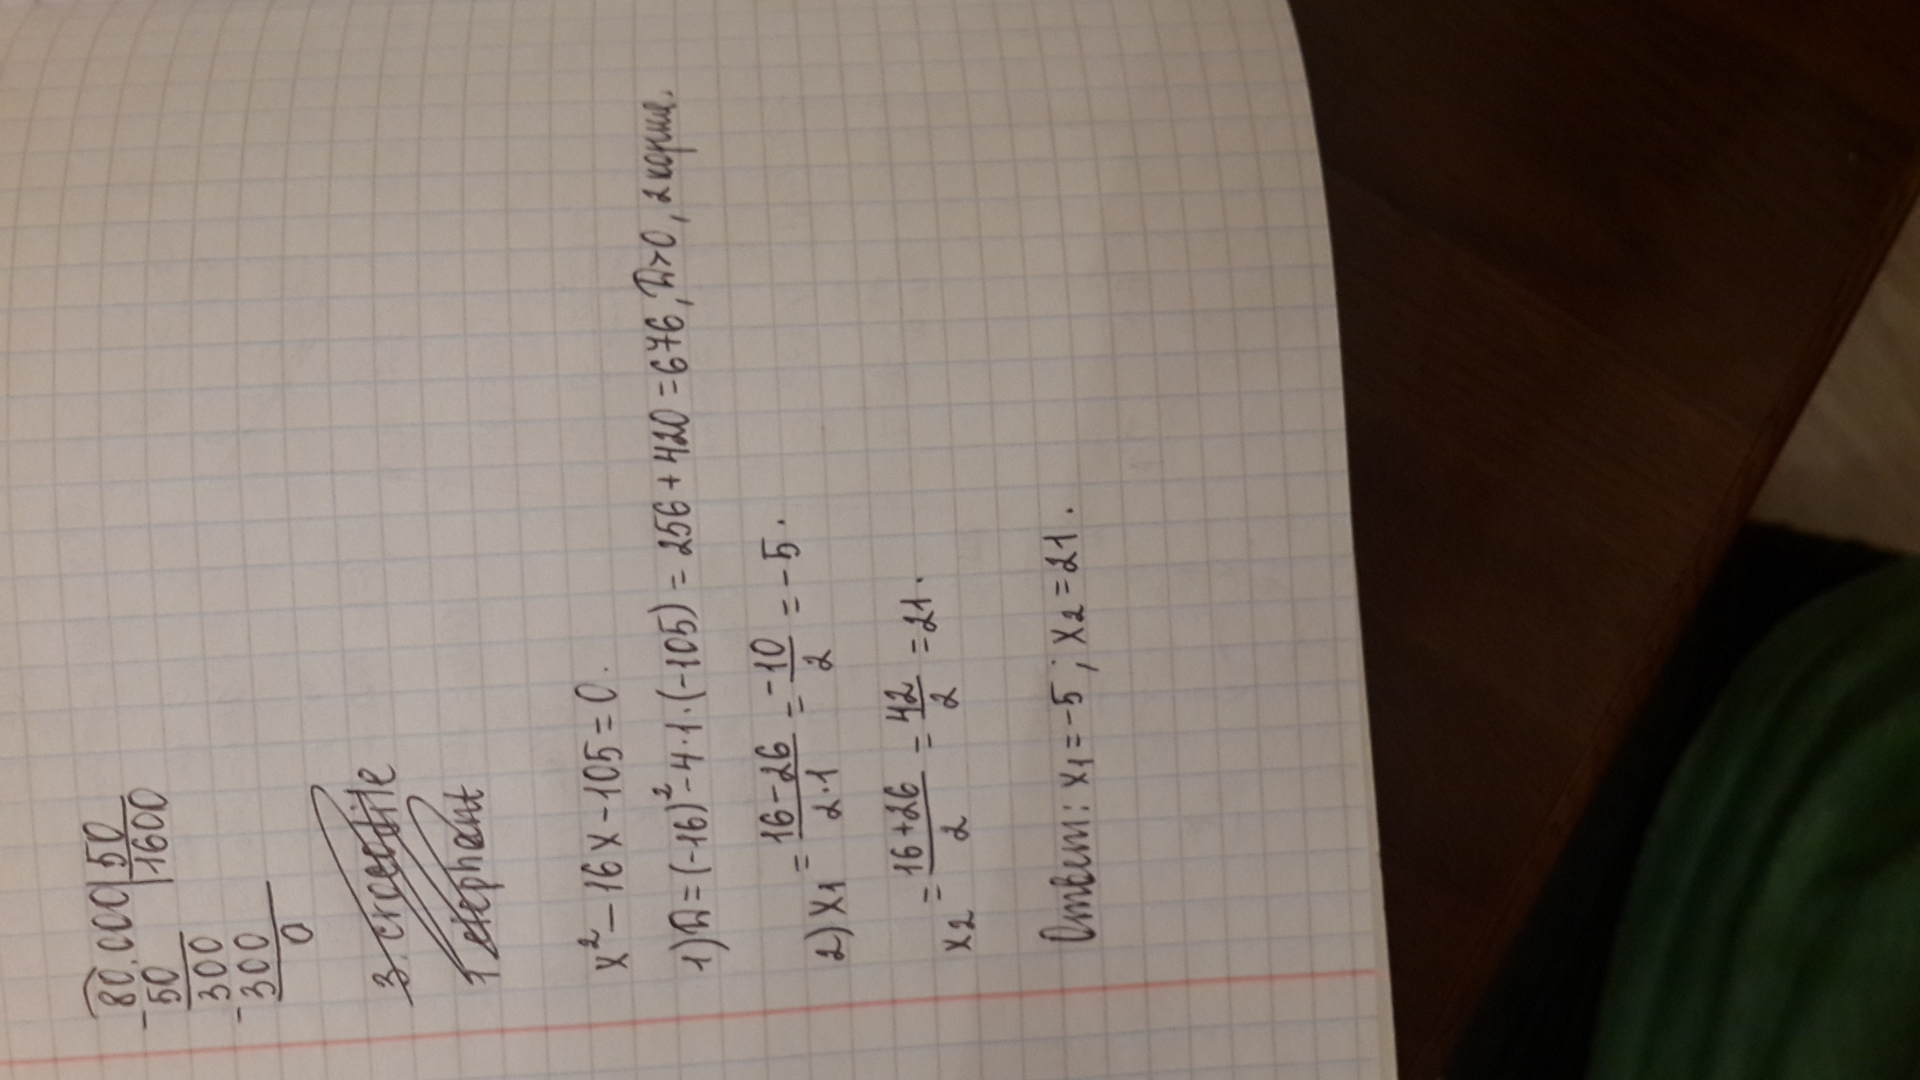 80.000 | 50
- 50 | 1600
300
- 300
0
3. crocodile
1 elephant
x² - 16x - 105 = 0.
1) D = (-16)² - 4·1·(-105) = 256 + 420 = 676, D>0, 2 корня.
2) x₁ = (16-26)/(2·1) = -10/2 = -5.
x₂ = (16+26)/2 = 42/2 = 21.
Ответ: x₁ = -5; x₂ = 21.